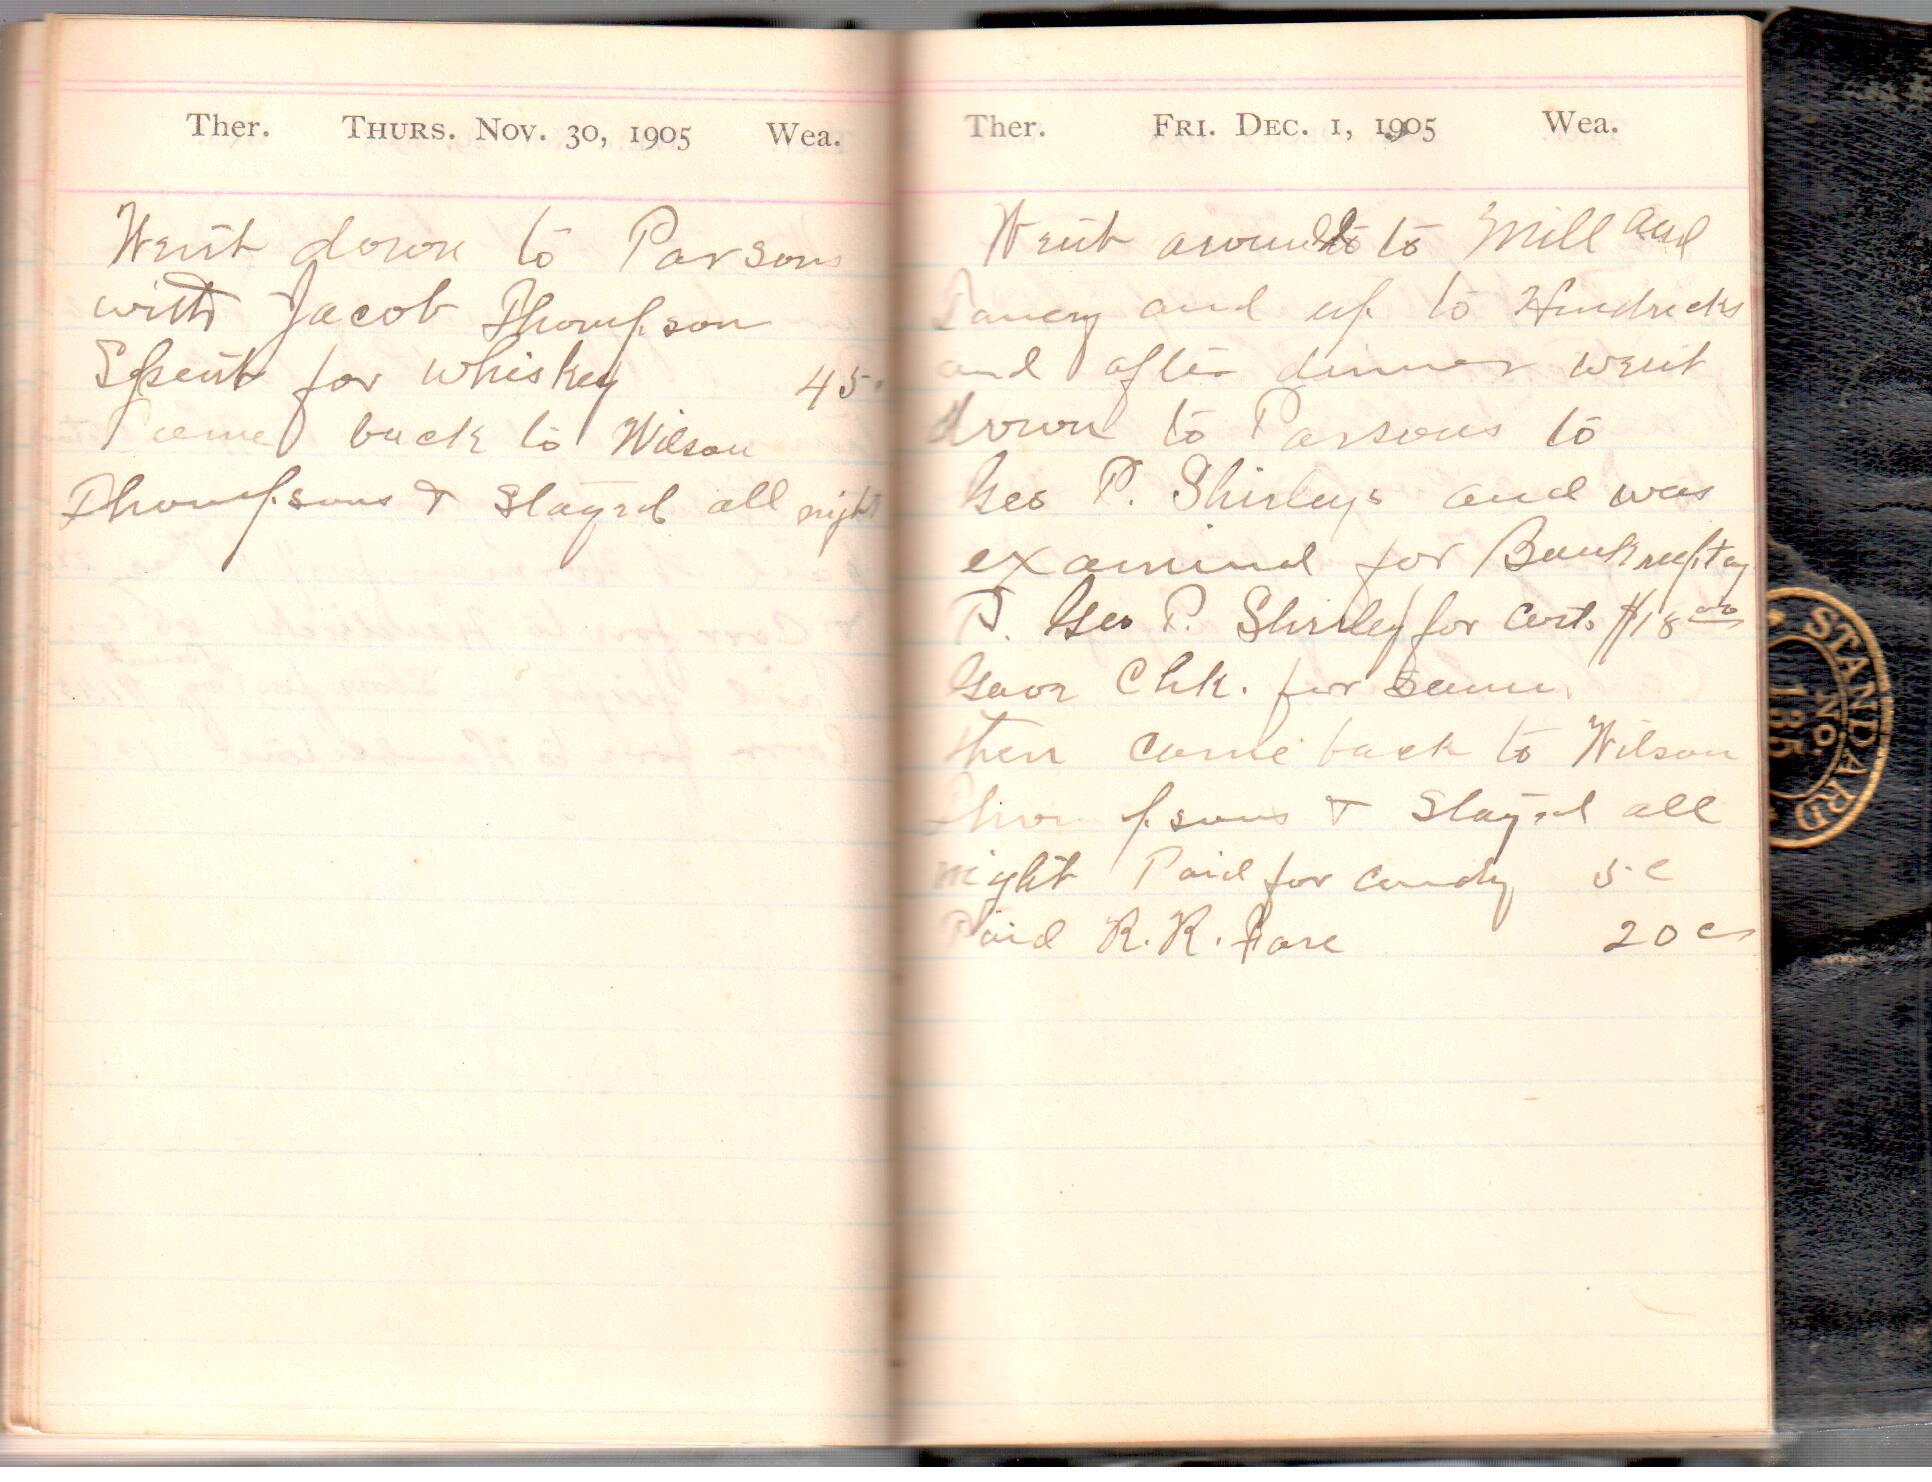 Ther. THURS. NOV. 30, 1905 Wea.
Went down to Parsons
with Jacob Thompson
Spent for whiskey 45
I came back to Wilson
Thompsons & Stayed all night
Ther. FRI. DEC. 1, 1905 Wea.
Went around to Mill and
and up to Hendricks
and after dinner went
down to Parsons to
Geo P. Shirleys and was
examind for Bankruptcy
P. Geo P. Shirley for cost. $18 00
Gave Chk. for Same.
then came back to Wilson
Thompsons & Stayed all
night Paid for candy 5 c
Paid R.R. Fare 20 c
STANDARD
No.
185